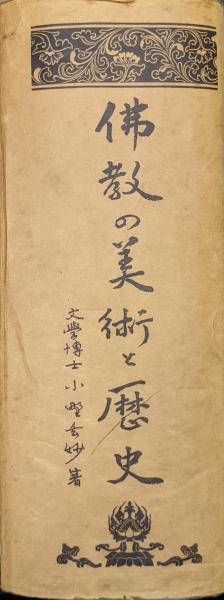 佛教の美術と歴史
文學博士小野玄妙著